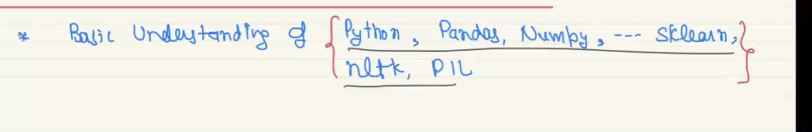 * Basic Understanding of { Python, Pandas, Numpy, --- Sklearn, }
nltk, PIL